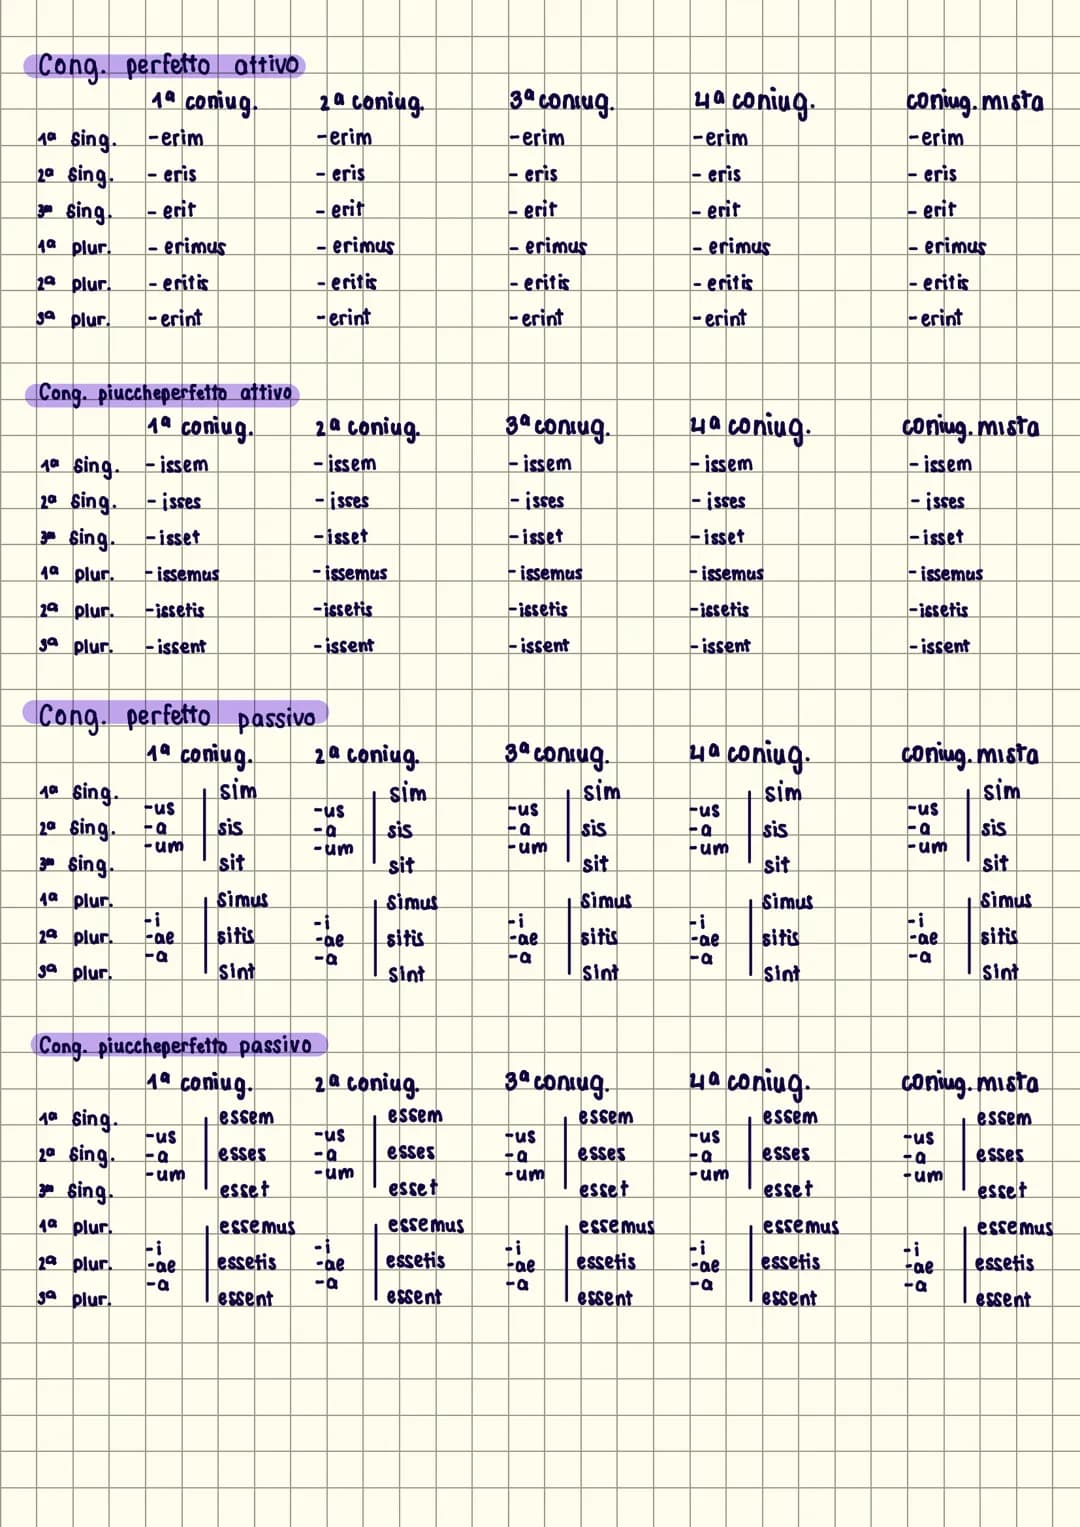 Cong. perfetto attivo
1ª coniug. 2ª coniug. 3ª coniug. 4ª coniug. coniug. mista
1ª sing. -erim -erim -erim -erim -erim
2ª sing. -eris -eris -eris -eris -eris
3ª sing. -erit -erit -erit -erit -erit
1ª plur. -erimus -erimus -erimus -erimus -erimus
2ª plur. -eritis -eritis -eritis -eritis -eritis
3ª plur. -erint -erint -erint -erint -erint
Cong. piuccheperfetto attivo
1ª coniug. 2ª coniug. 3ª coniug. 4ª coniug. coniug. mista
1ª sing. -issem -issem -issem -issem -issem
2ª sing. -isses -isses -isses -isses -isses
3ª sing. -isset -isset -isset -isset -isset
1ª plur. -issemus -issemus -issemus -issemus -issemus
2ª plur. -issetis -issetis -issetis -issetis -issetis
3ª plur. -issent -issent -issent -issent -issent
Cong. perfetto passivo
1ª coniug. 2ª coniug. 3ª coniug. 4ª coniug. coniug. mista
1ª sing. -us sim -us sim -us sim -us sim -us sim
2ª sing. -a sis -a sis -a sis -a sis -a sis
3ª sing. -um sit -um sit -um sit -um sit -um sit
1ª plur. -i simus -i simus -i simus -i simus -i simus
2ª plur. -ae sitis -ae sitis -ae sitis -ae sitis -ae sitis
3ª plur. -a sint -a sint -a sint -a sint -a sint
Cong. piuccheperfetto passivo
1ª coniug. 2ª coniug. 3ª coniug. 4ª coniug. coniug. mista
1ª sing. -us essem -us essem -us essem -us essem -us essem
2ª sing. -a esses -a esses -a esses -a esses -a esses
3ª sing. -um esset -um esset -um esset -um esset -um esset
1ª plur. -i essemus -i essemus -i essemus -i essemus -i essemus
2ª plur. -ae essetis -ae essetis -ae essetis -ae essetis -ae essetis
3ª plur. -a essent -a essent -a essent -a essent -a essent